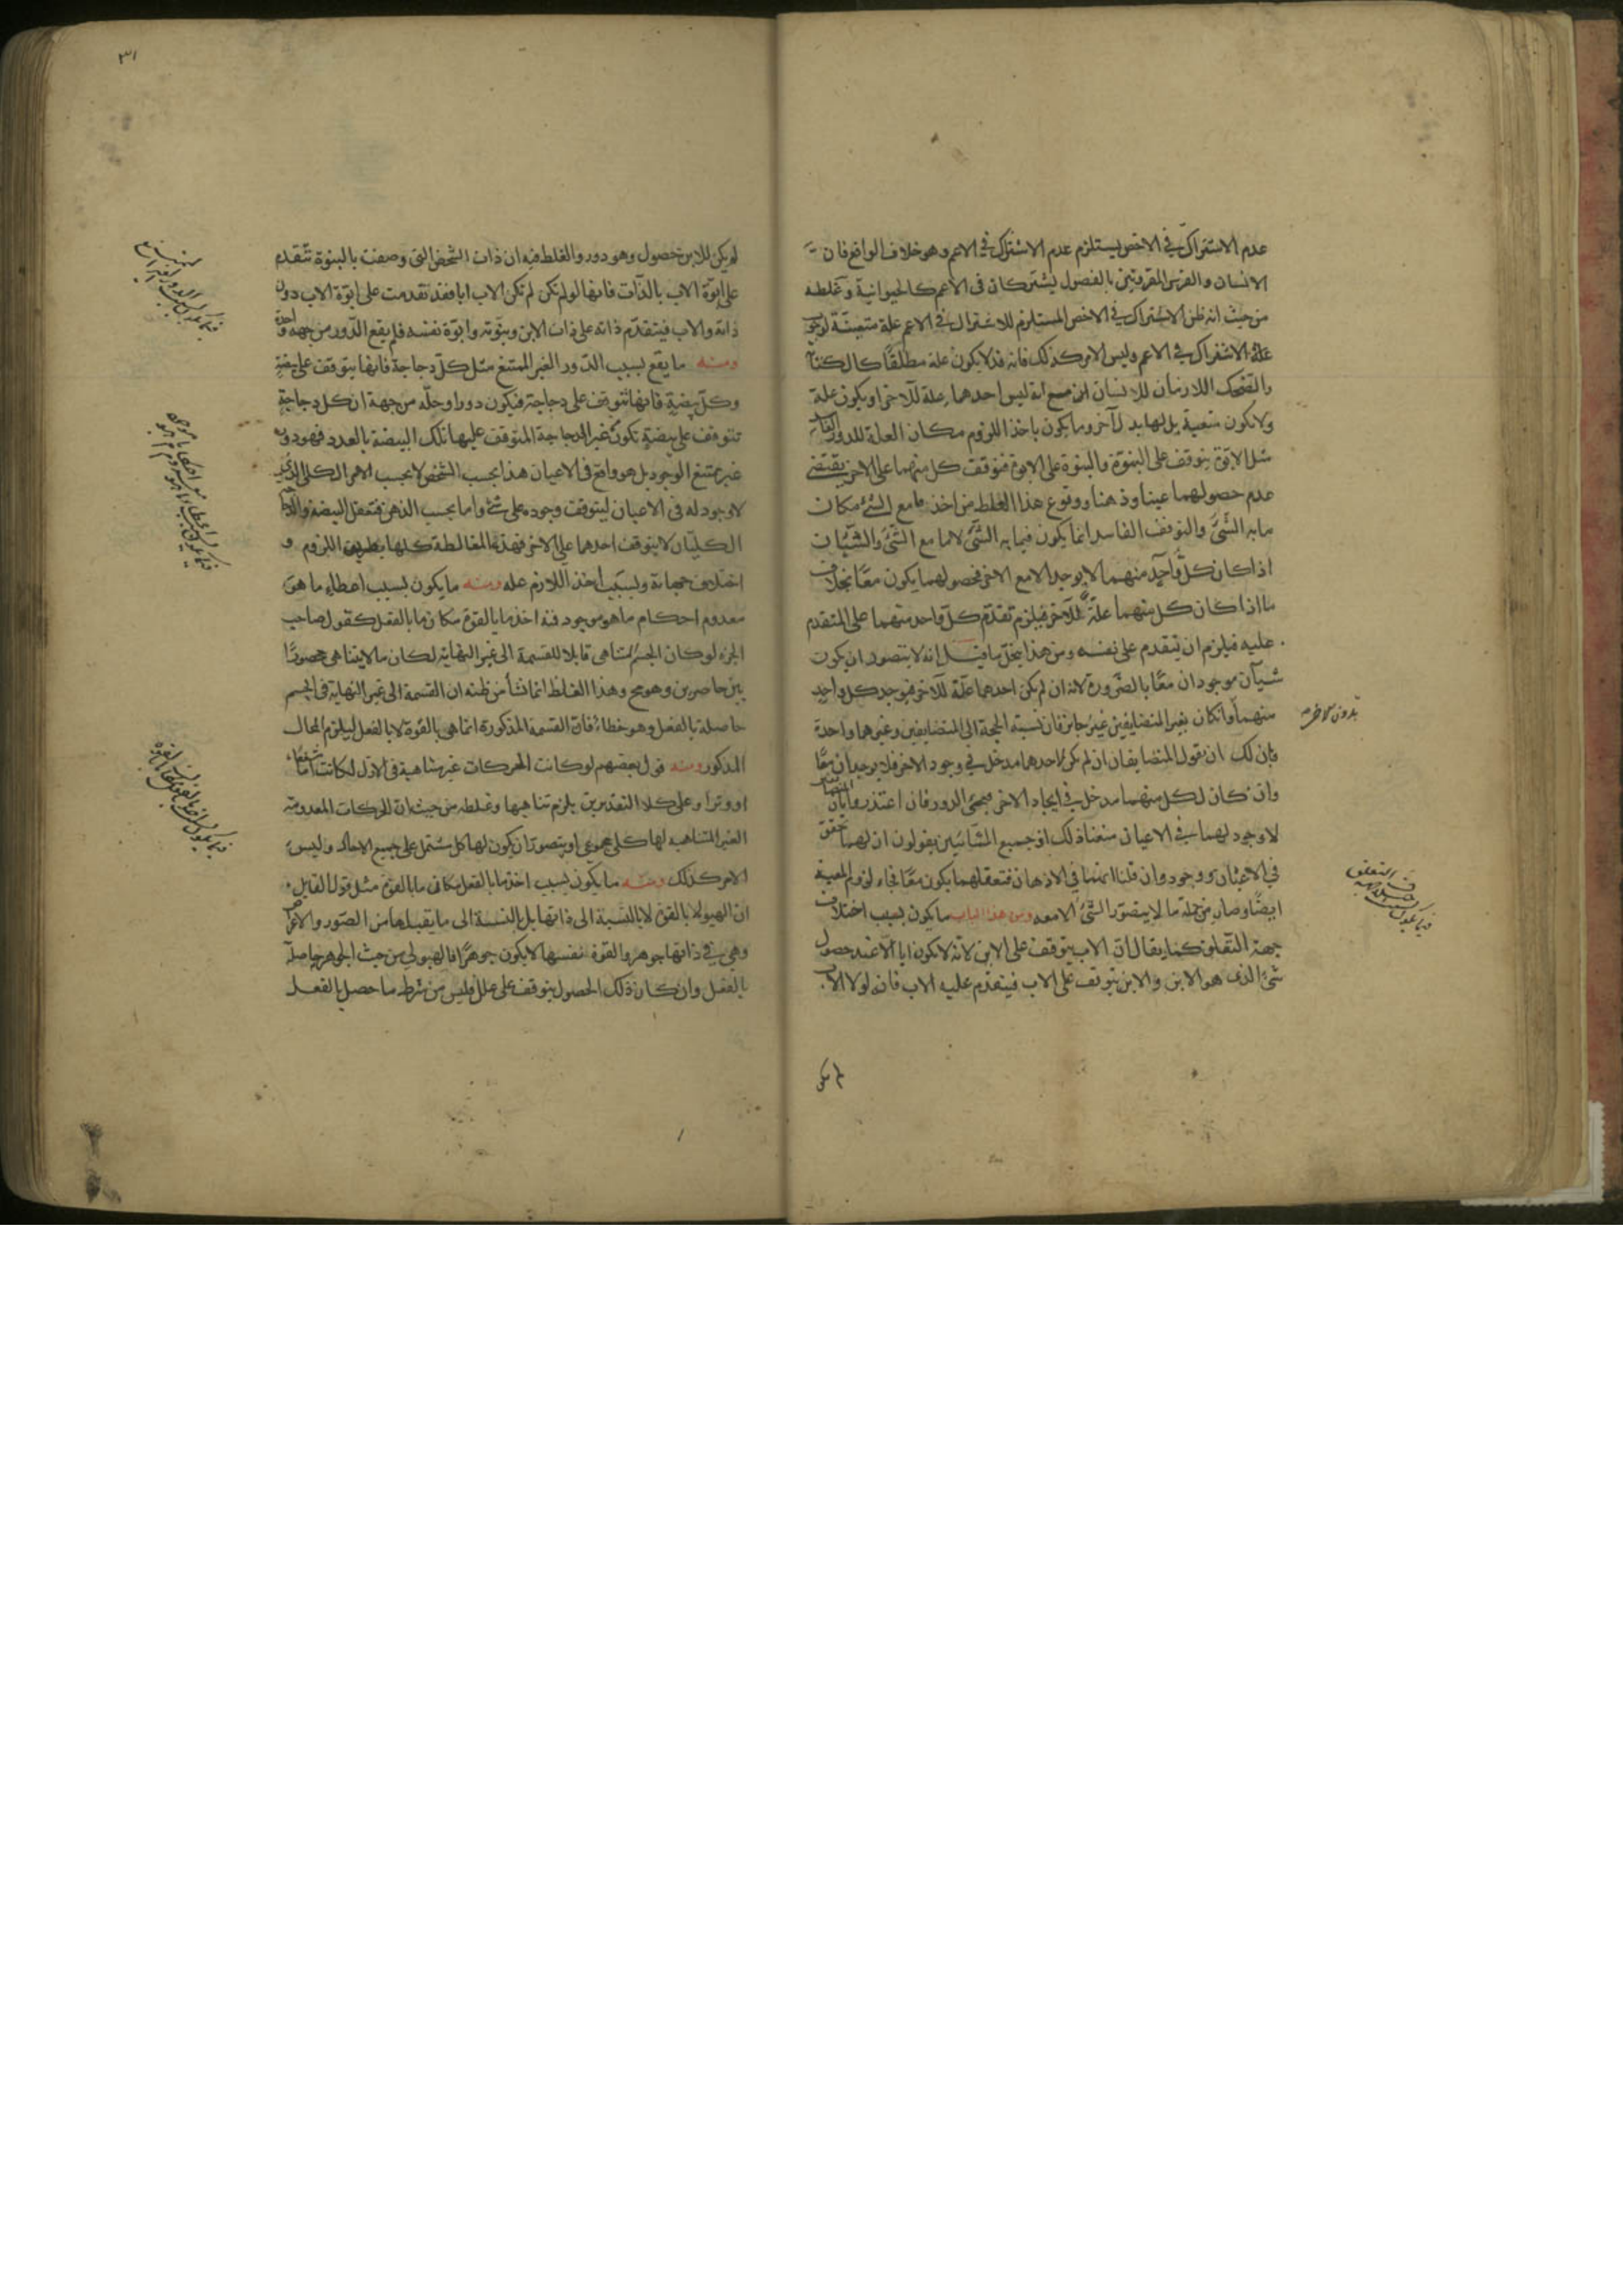 عدم الاشتراك في الاخص يستلزم عدم الاشتراك في الاعم وهو خلاف الواقع فان
الانسان والفرس المفترقين بالفصول يشتركان في الاعم كالحيوانية وغلطه
من حيث انه ظن الاشتراك في الاخص المستلزم للاشتراك في الاعم علة متعينة
علة الاشتراك في الاعم وليس الامر كذلك فانه قد لا يكون علة مطلقا كالكتابة
والضحك اللازمان للانسان مع انه ليس احدهما علة للآخر او يكون علة
ولا يكون متعينة بل لها بدل آخر وما يكون باخذ اللزوم مكان العلة للدور الفاسد
مثل الابوة يتوقف على البنوة والبنوة على الابوة فتوقف كل منهما على الاخر يقتضى
عدم حصولهما عينا وذهنا ووقوع هذا الغلط من اخذ ما مع الشئ مكان
ما به الشئ والتوقف الفاسد انما يكون فيما به الشئ لا ما مع الشئ والشيئان
اذا كان كل واحد منهما لا يوجد الا مع الاخر فحصولهما يكون معا بخلاف
ما اذا كان كل منهما علة للآخر فيلزم تقدم كل واحد منهما على المتقدم
عليه فيلزم ان يتقدم على نفسه ومن هذا ينحل ما قيل انه لا يتصور ان يكون
شيئان موجودان معا بالضرورة لانه ان لم يكن احدهما علة للآخر فيوجد كل واحد
منهما وان كان بغير المتضايفين غير جائز فان نسبة الحجة الى المتضايفين وغيرهما واحدة
فان لك ان تقول المتضايفان ان لم يكن لاحدهما مدخل في وجود الاخر فلا يوجدان معا
وان كان لكل منهما مدخل في ايجاد الاخر فيجئ الدور فان اعتذروا بان المتضايفين
لا وجود لهما في الاعيان منعنا ذلك اذ جميع المشائيين يقولون ان لهما تحقق
في الاعيان ووجود وان قلنا انهما في الاذهان فتعقلهما يكون معا فجاء لزوم المعية
ايضا وصار من جملة ما لا يتصور الشئ الا معه ومن هذا الباب ما يكون بسبب اختلاف
جهة التعلق كما يقال ان الاب يتوقف على الابن لانه لا يكون ابا الا عند حصول
شئ الذى هو الابن والابن يتوقف على الاب فيتقدم عليه الاب فانه لولا الاب
لم يكن
بدون الاخر
٣١
لم يكن للابن حصول وهو دور والغلط فيه ان ذات الشخص التى وصفت بالبنوة تتقدم
على ابوة الاب بالذات فانها لو لم تكن لم تكن الاب ابا فقد تقدمت على ابوة الاب دون
ذاته والاب فيتقدم ذاته على ذات الابن وبنوته وابوة نفسه فلم يقع الدور من جهة واحدة
ومنه ما يقع بسبب الدور الغير الممتنع مثل كل دجاجة فانها يتوقف على بيضة
وكل بيضة فانها تتوقف على دجاجة فيكون دورا وحله من جهة ان كل دجاجة
تتوقف على بيضة تكون غير الدجاجة المتوقف عليها تلك البيضة بالعدد فهو دور
غير ممتنع الوجود بل هو واقع في الاعيان هذا بحسب الشخص لا بحسب الامر الكلى الذى
لا وجود له في الاعيان ليتوقف وجوده على شئ واما بحسب الذهن فتعقل البيضة والدجاجة
الكليتان لا يتوقف احدهما على الاخر فهذه المغالطة كلها بطريق اللزوم و
اختلاف جهاته وبسبب اخذ اللازم علة ومنه ما يكون بسبب اعطاء ما هو
معدوم احكام ما هو موجود فيه اخذ ما بالقوة مكان ما بالفعل كقول صاحب
الجزء لو كان الجسم المتناهى قابلا للقسمة الى غير النهاية لكان ما لا يتناهى محصورا
بين حاصرين وهو مح وهذا الغلط انما نشأ من ظنه ان القسمة الى غير النهاية في الجسم
حاصلة بالفعل وهو خطاء فان القسمة المذكورة انما هى بالقوة لا بالفعل ليلزم المحال
المذكور ومنه قول بعضهم لو كانت الحركات غير متناهية في الازل لكانت اما شفعا
او وترا وعلى كلا التقديرين يلزم تناهيها وغلطه من حيث ان الحركات المعدومة
الغير المتناهية لها كلى مجموعى او يتصور ان يكون لها كل مشتمل على جميع الاحاد وليس
الامر كذلك ومنه ما يكون بسبب اخذ ما بالفعل مكان ما بالقوة مثل قول القايل
ان الهيولا بالقوة لا بالنسبة الى ذاتها بل بالنسبة الى ما يقبلها من الصور والاعراض
وهى في ذاتها جوهر والقوة نفسها لا يكون جوهرا فالهيولى من حيث الجوهر حاصلة
بالفعل وان كان ذلك الحصول يتوقف على علل وليس من شرط ما حصل بالفعل